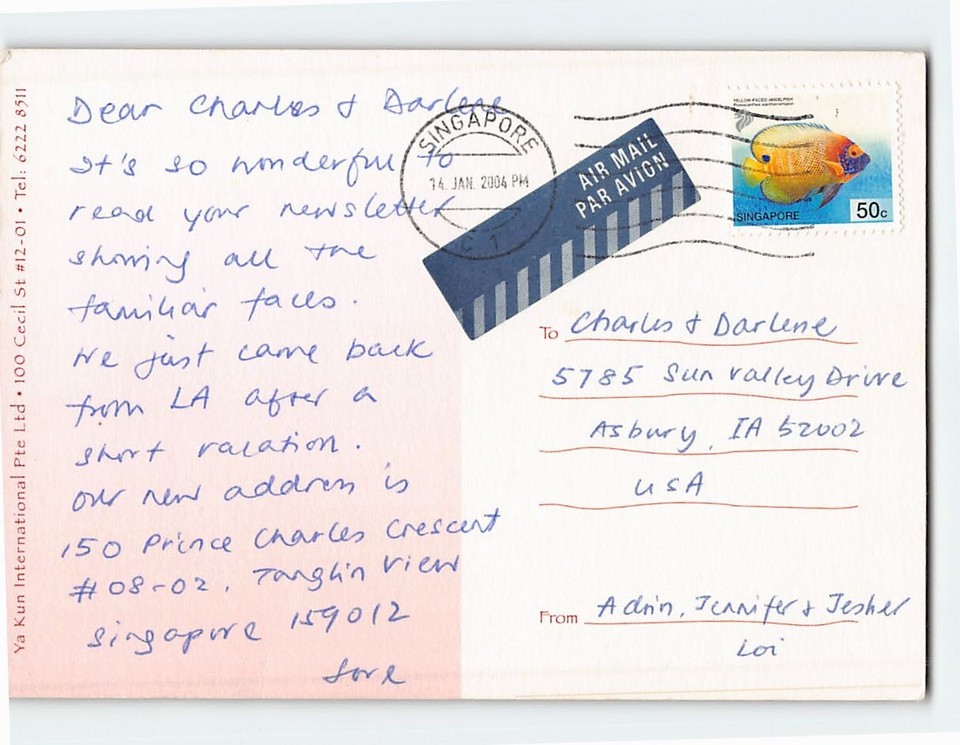 Ya Kun International Pte Ltd • 100 Cecil St #12-01 • Tel: 6222 8511
Dear Charles & Darlene
It's so wonderful to
read your newsletter
showing all the
familiar faces.
We just came back
from LA after a
short vacation.
Our new address is
150 Prince Charles Crescent
#08-02, Tanglin View
Singapore 159012
Love
SINGAPORE
14. JAN. 2004 PM
C 1
AIR MAIL
PAR AVION
YELLOW-FACED ANGELFISH
SINGAPORE
50c
To Charles & Darlene
5785 Sun Valley Drive
Asbury, IA 52002
USA
From Adrin, Jennifer & Jesher
Loi